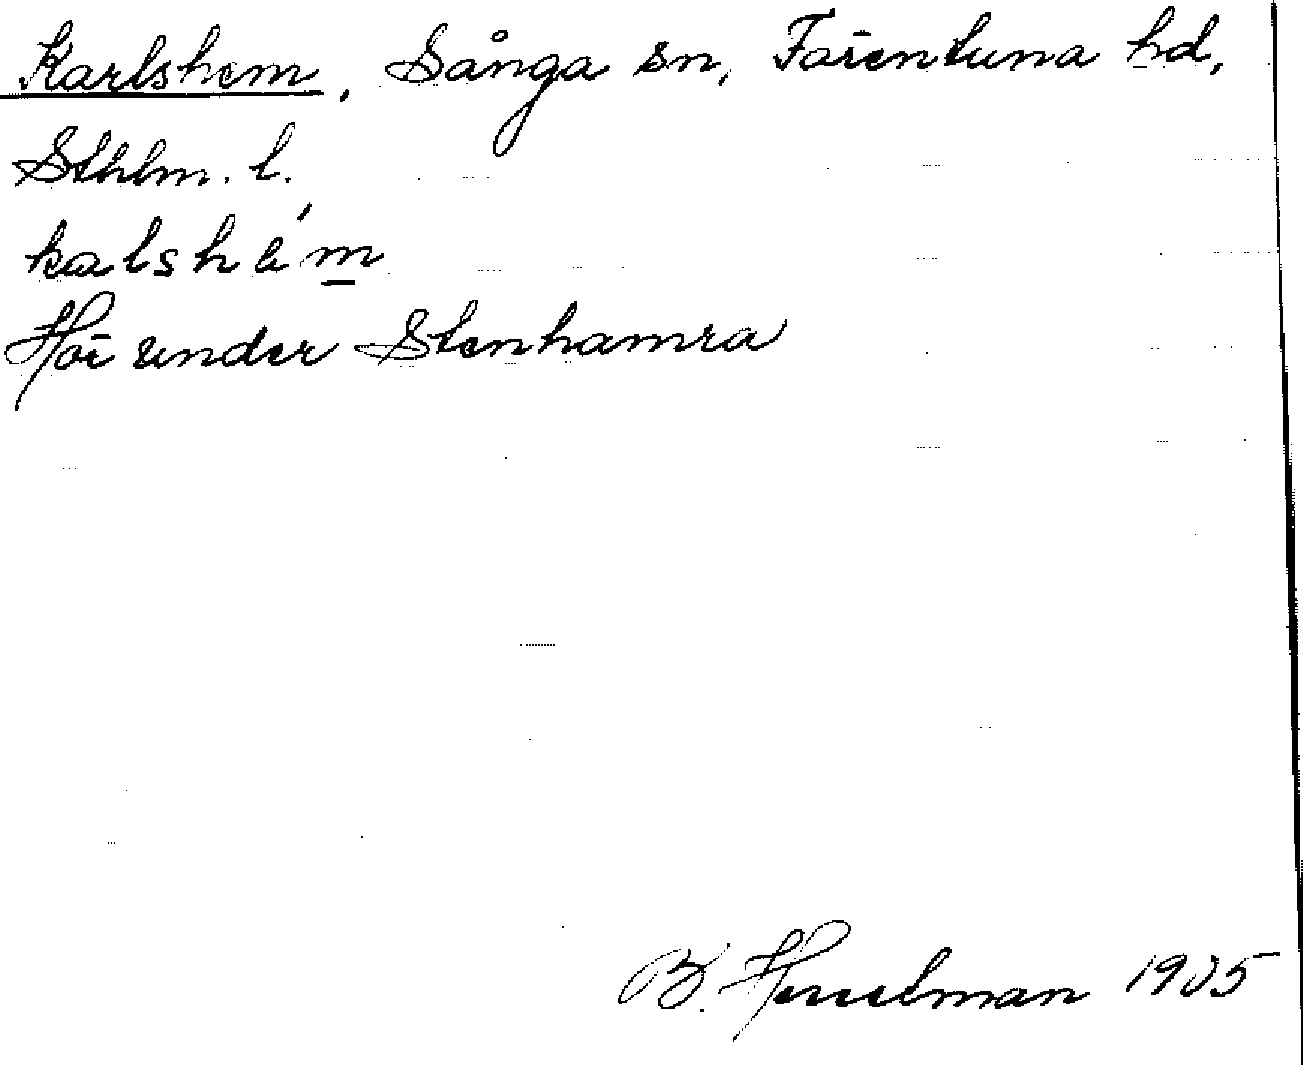 Karlshem, Sånga sn, Färentuna hd,
Sthlm. l.
kalshé m
Hör under Stenhamra
B. Hesselman 1905